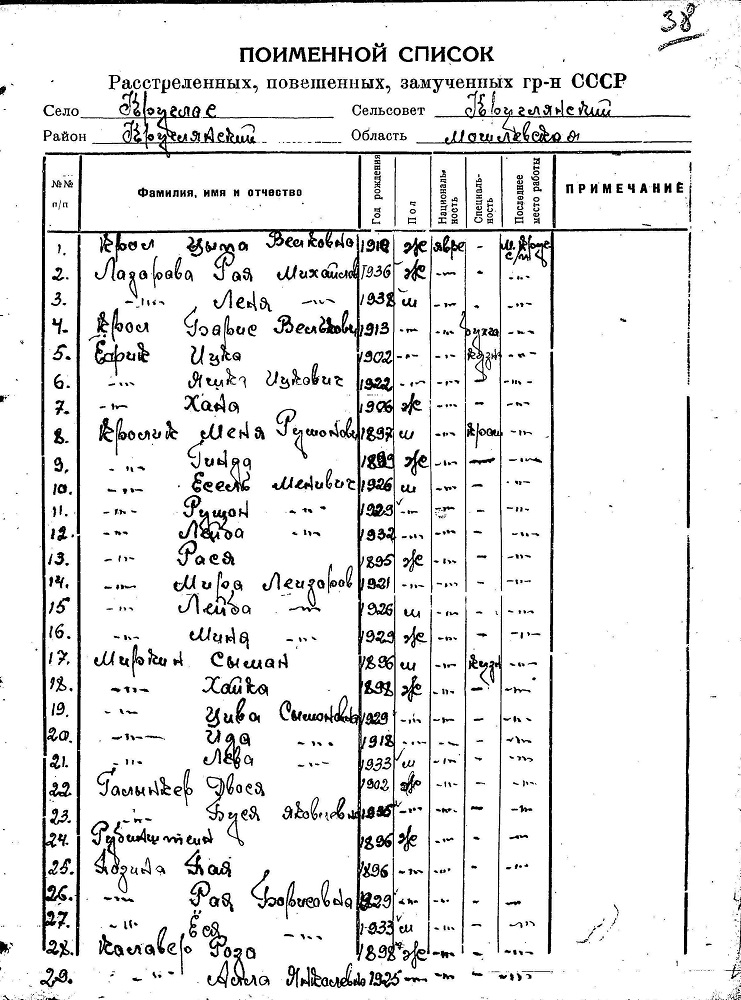 38
ПОИМЕННОЙ СПИСОК
Расстреленных, повешенных, замученных гр-н СССР
Село Круглое Сельсовет Круглянский
Район Круглянский Область Могилевская
№№ п/п Фамилия, имя и отчество Год рождения Пол Националь- ность Специаль- ность Последнее место работы ПРИМЕЧАНИЕ
1. Крол Цыпа Вельковна 1910 ж явре -
2. Лазарова Рая Михайлов 1936 ж -"- - -"-
3. -"- Леня -"- 1938 м -"- - -"-
4. Крол Барис Вельковч 1913 -"- -"- -"-
5. Ёарик Ицка 1902 -"- -"- кузн -"-
6. -"- Яшка Ицкович 1922 -"- -"- - -"-
7. -"- Хана 1906 ж -"- - -"-
8. Кролик Меня Рушонов 1897 м -"- -"-
9. -"- Гинда 1899 ж -"- - -"-
10. -"- Есель Менивич 1926 м -"- - -"-
11. -"- Рушон -"- 1929 -"- - -"-
12. -"- Лейба -"- 1932 -"- -"- - -"-
13. -"- Рася 1895 ж -"- - -"-
14. -"- Мира Лейзаров 1921 -"- -"- - -"-
15 -"- Лейба -"- 1926 м -"- - -"-
16. -"- Миня -"- 1929 ж -"- - -"-
17. Миркин Сыман 1896 м -"- кузн -"-
18. -"- Хайка 1898 ж -"- - -"-
19. -"- Цива Сымоновна 1929 -"- -"- - -"-
20. -"- Ида -"- 1918 -"- -"- - -"-
21. -"- Лёва -"- 1933 м -"- - -"-
22 Галынкер Двося 1902 ж -"- - -"-
23. -"- Буся Яковлевна 1935 -"- -"- - -"-
24. Рубинштеин 1896 ж -"- - -"-
25. Хая 1896 -"- -"- - -"-
26. -"- Рая Борисовна 1929 -"- -"- - -"-
27. -"- Ёся -"- 1933 м -"- - -"-
28. Калавер Роза 1898 ж -"- - -"-
29. -"- 1925 -"- -"- - -"-